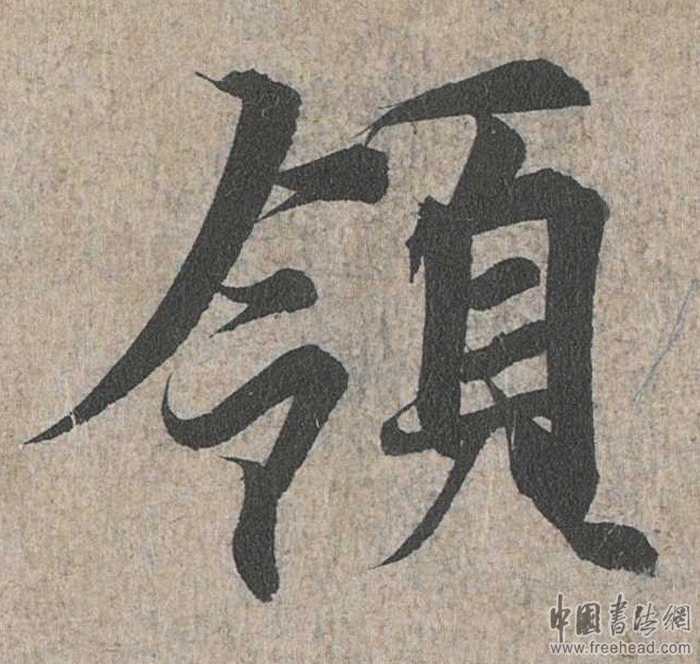 領
中国书法網
www.freehead.com